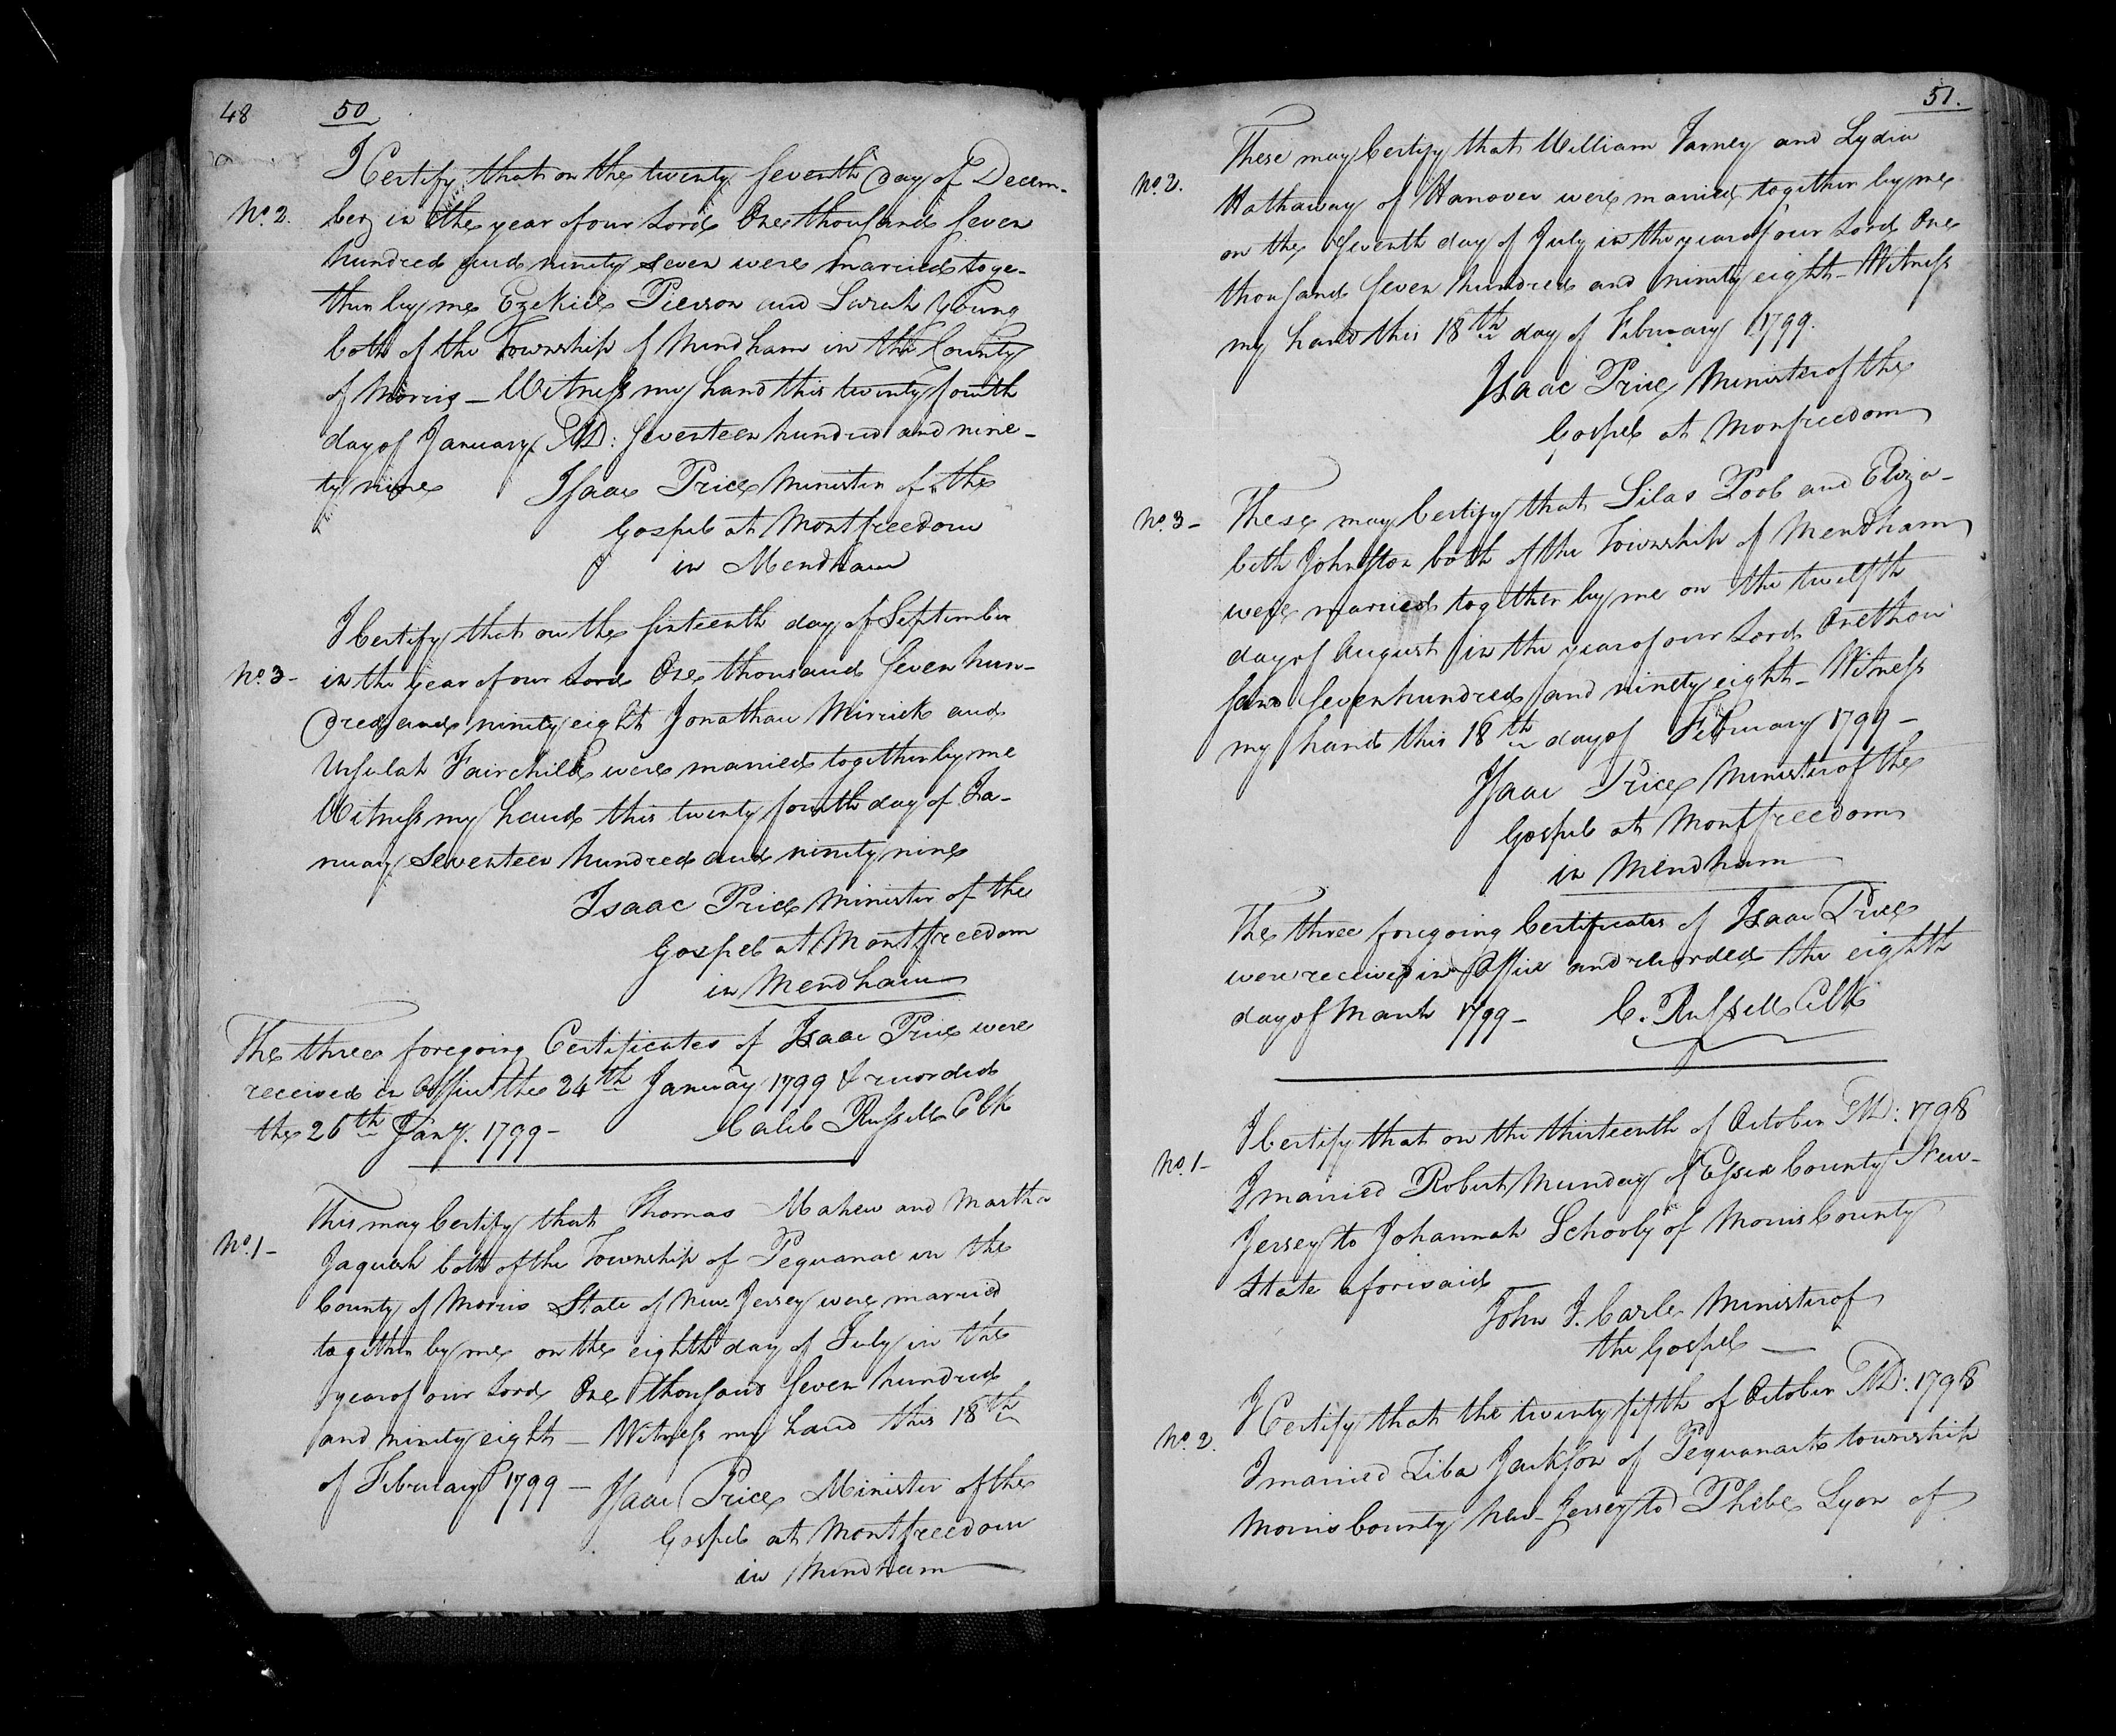 48 50
I Certify that on the twenty seventh day of Decem-
No. 2. ber in the year of our Lord One thousand seven
hundred and ninety seven were married toge-
ther by me Ezekiel Pierson and Sarah Young
both of the Township of Mendham in the County
of Morris — Witness my hand this twenty fourth
day of January AD: seventeen hundred and nine-
ty nine Isaac Price Minister of the
Gospel at Montfreedom
in Mendham
I Certify that on the sixteenth day of September
No. 3 - in the year of our Lord One thousand seven hun-
dred and ninety eight Jonathan Mirrick and
Ursulah Fairchild were married together by me
Witness my hand this twenty fourth day of Ja-
nuary Seventeen hundred and ninety nine
Isaac Price Minister of the
Gospel at Montfreedom
in Mendham
The three foregoing Certificates of Isaac Price were
received in Office the 24th January 1799 & recorded
the 26th Jany. 1799 - Caleb Russell Clk
This may Certify that Thomas Mahew and Martha
No. 1 - Jaquish both of the Township of Pequanac in the
County of Morris State of New Jersey were married
together by me on the eighth day of July in the
year of our Lord One thousand seven hundred
and ninety eight — Witness my hand this 18th
of February 1799 — Isaac Price Minister of the
Gospel at Montfreedom
in Mendham
51.
These may Certify that William Farney and Lydia
No. 2. Hathaway of Hanover were married together by me
on the seventh day of July in the year of our Lord One
thousand seven hundred and ninety eight - Witness
my hand this 18th day of February 1799.
Isaac Price Minister of the
Gospel at Monfreedom
No. 3 - These may Certify that Silas Pool and Eliza-
beth Johnston both of the Township of Mendham
were married together by me on the twelfth
day of August in the year of our Lord One thou
sand seven hundred and ninety eight - Witness
my hand this 18th day of February 1799 -
Isaac Price Minister of the
Gospel at Montfreedom
in Mendham
The three foregoing Certificates of Isaac Price
were received in Office and recorded the eighth
day of March 1799 - C. Russell Clk
I Certify that on the thirteenth of October AD: 1798
No. 1 - I married Robert Munday of Essex County New-
Jersey to Johannah Schooly of Morris County
State aforesaid —
John I. Carle Minister of
the Gospel —
I Certify that the twenty fifth of October AD: 1798
No. 2. I married Ziba Jackson of Pequanack township
Morris County New-Jersey to Phebe Lyon of